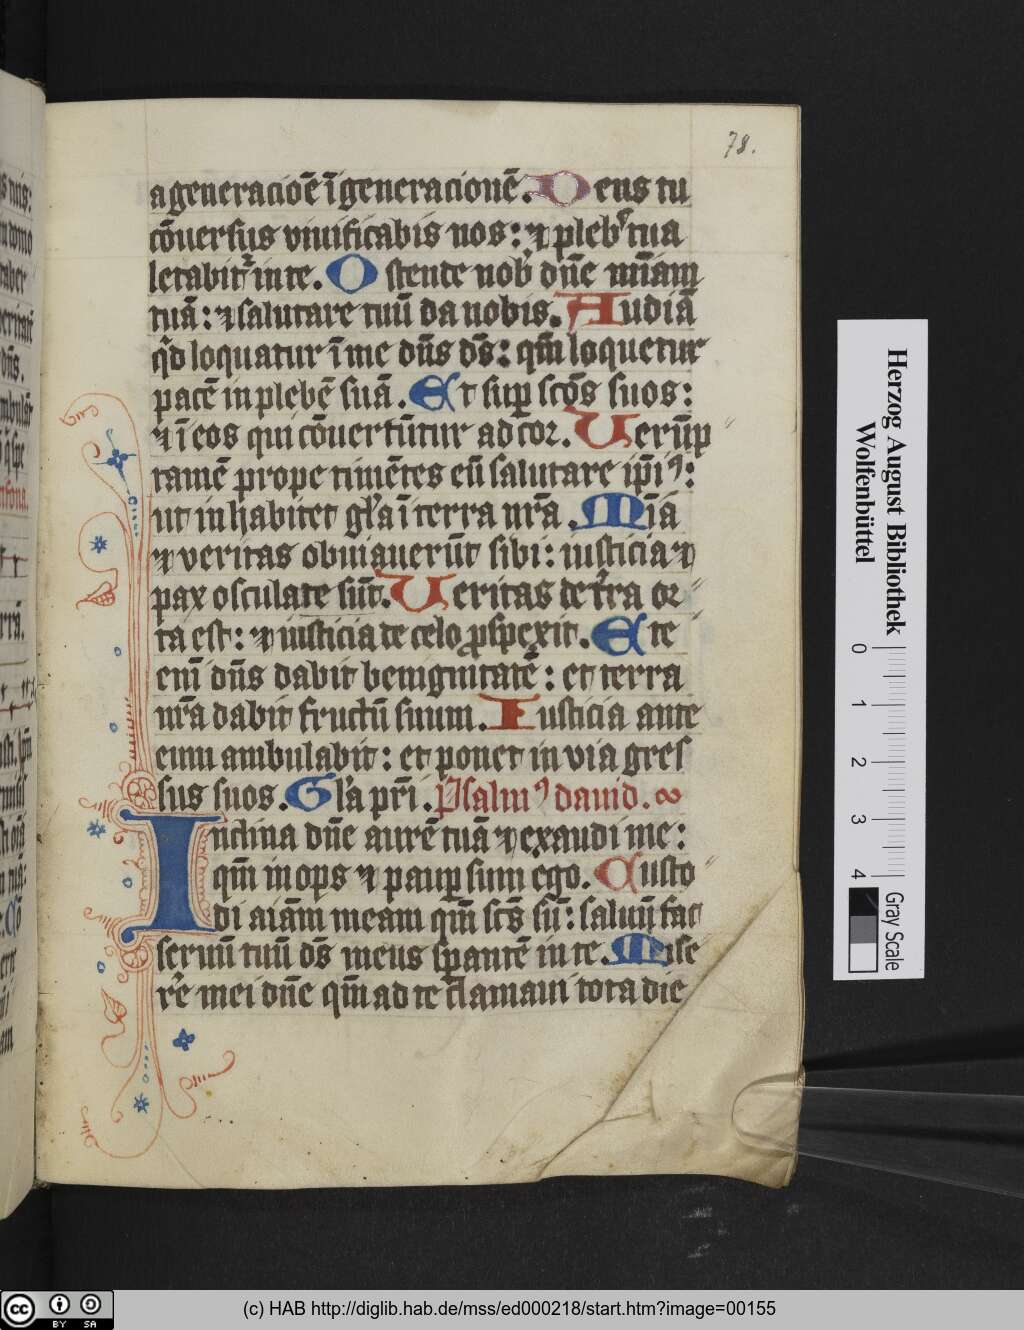 78.
a generacioē ī generacionē. Deus tu
cōuersus viuificabis nos: ⁊ plebs tua
letabitur in te. Ostende nob dnē mīam
tuā: ⁊ salutare tuū da nobis. Audiā
qd loquatur ī me dn̄s ds̄: qm̄ loquetur
pacē in plebē suā. Et sup scōs suos:
⁊ ī eos qui cōuertūtur ad cor. Verūp
tamē prope timētes eū salutare ip̄iꝰ:
ut inhabitet gla ī terra nr̄a. Mīa
⁊ veritas obuiauerūt sibi: iusticia ⁊
pax osculate sūt. Veritas de tra or
ta est: ⁊ iusticia de celo ꝓspexit. Ete
enī dn̄s dabit benignitatē: et terra
nr̄a dabit fructū suum. Iusticia ante
eum ambulabit: et ponet in via gres
sus suos. Gla pr̄i. Psalmꝰ dauid.
Inclina dnē aurē tuā ⁊ exaudi me:
qm̄ inops ⁊ paup sum ego. Custo
di aīam meam qm̄ scs̄ sū: saluū fac
seruū tuū ds̄ meus spantē in te. Mise
re mei dnē qm̄ ad te clamaui tota die
Herzog August Bibliothek
Wolfenbüttel
0 1 2 3 4 Gray Scale
(c) HAB http://diglib.hab.de/mss/ed000218/start.htm?image=00155
cc BY SA